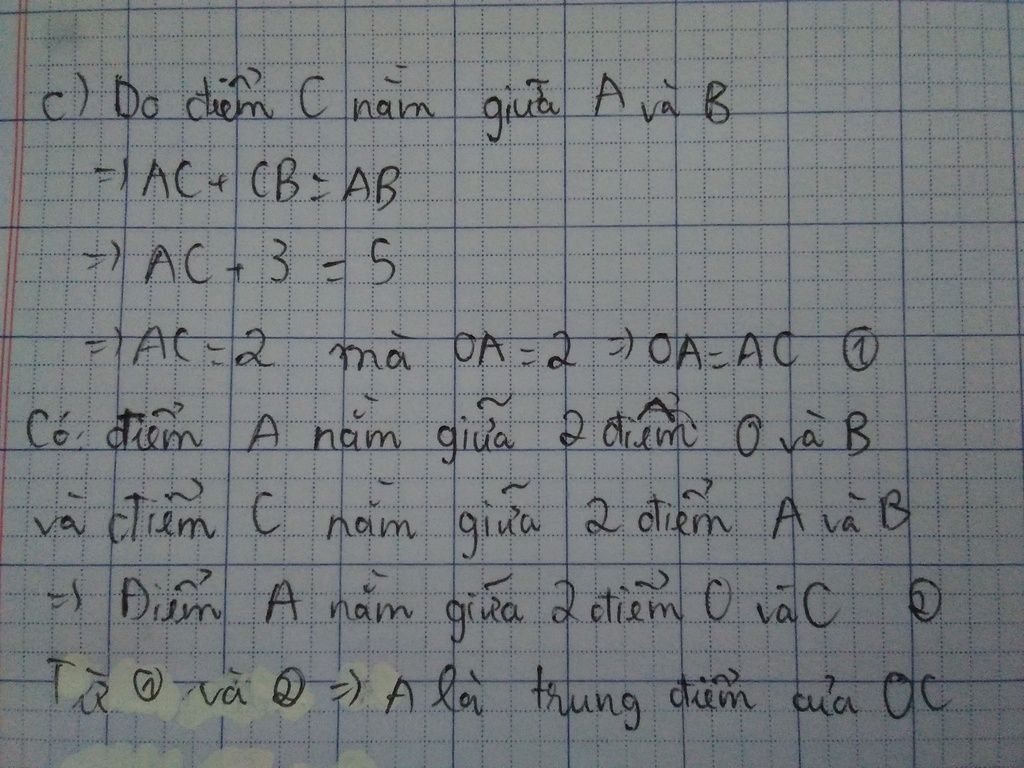 c) Do điểm C nằm giữa A và B
=> AC + CB = AB
=> AC + 3 = 5
=> AC = 2 mà OA = 2 => OA = AC ①
Có: điểm A nằm giữa 2 điểm O và B
và điểm C nằm giữa 2 điểm A và B
=> Điểm A nằm giữa 2 điểm O và C ②
Từ ① và ② => A là trung điểm của OC